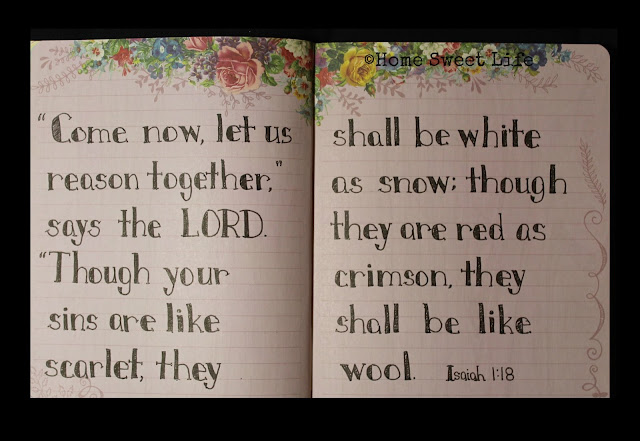 ©Home Sweet Life
"Come now, let us
reason together,"
says the LORD.
"Though your
sins are like
scarlet, they
shall be white
as snow; though
they are red as
crimson, they
shall be like
wool. Isaiah 1:18